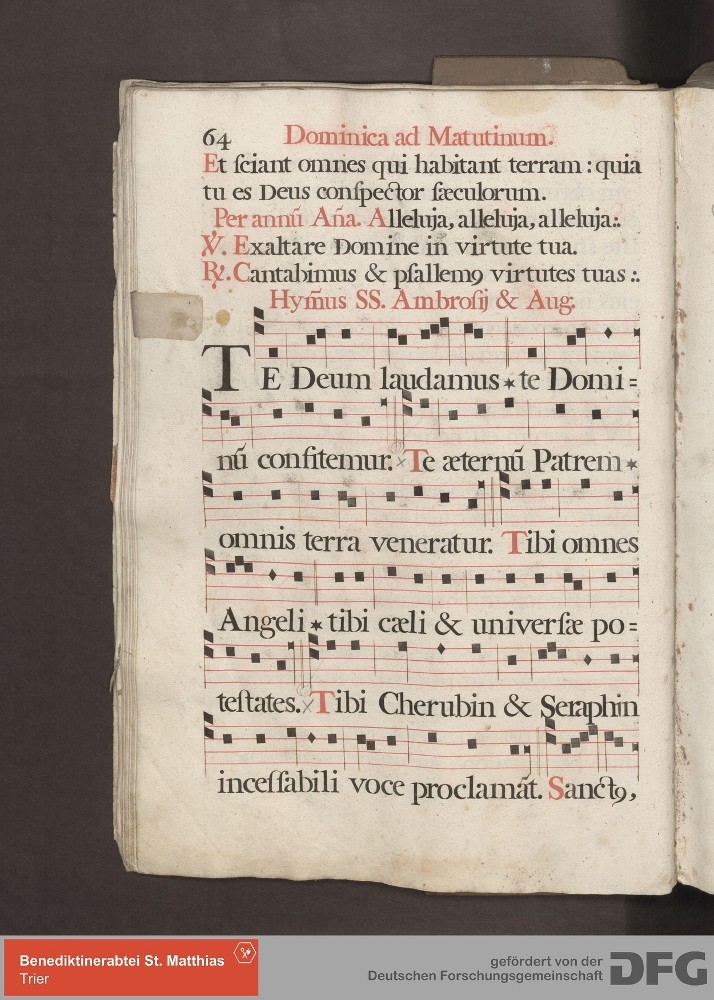 64 Dominica ad Matutinum.
Et ſciant omnes qui habitant terram : quia
tu es Deus conſpector ſæculorum.
Per annũ Añа. Alleluja, alleluja, alleluja:.
℣. Exaltare Domine in virtute tua.
℟. Cantabimus & pſallemꝯ virtutes tuas :.
Hym̃us SS. Ambroſij & Aug.
TE Deum laudamus * te Domi=
nũ confitemur. Te æternũ Patrem *
omnis terra veneratur. Tibi omnes
Angeli * tibi cæli & univerſæ po=
teſtates. Tibi Cherubin & Seraphin
inceſſabili voce proclamãt. Sanctꝯ,
Benediktinerabtei St. Matthias
Trier
gefördert von der
Deutschen Forschungsgemeinschaft DFG